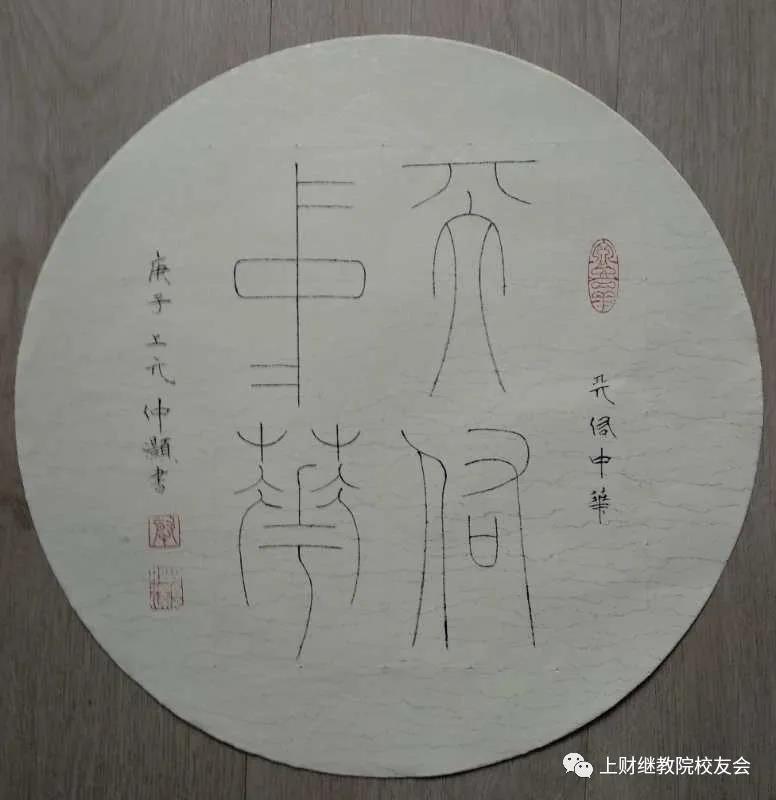 天佑中華
天佑
中華
庚子上元仲顥書
上财继教院校友会